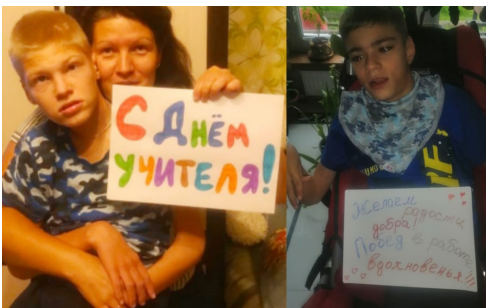 С Днём
УЧИТЕЛЯ!
Желаем
радости
добра!
Побед в работе
вдохновенья!!!